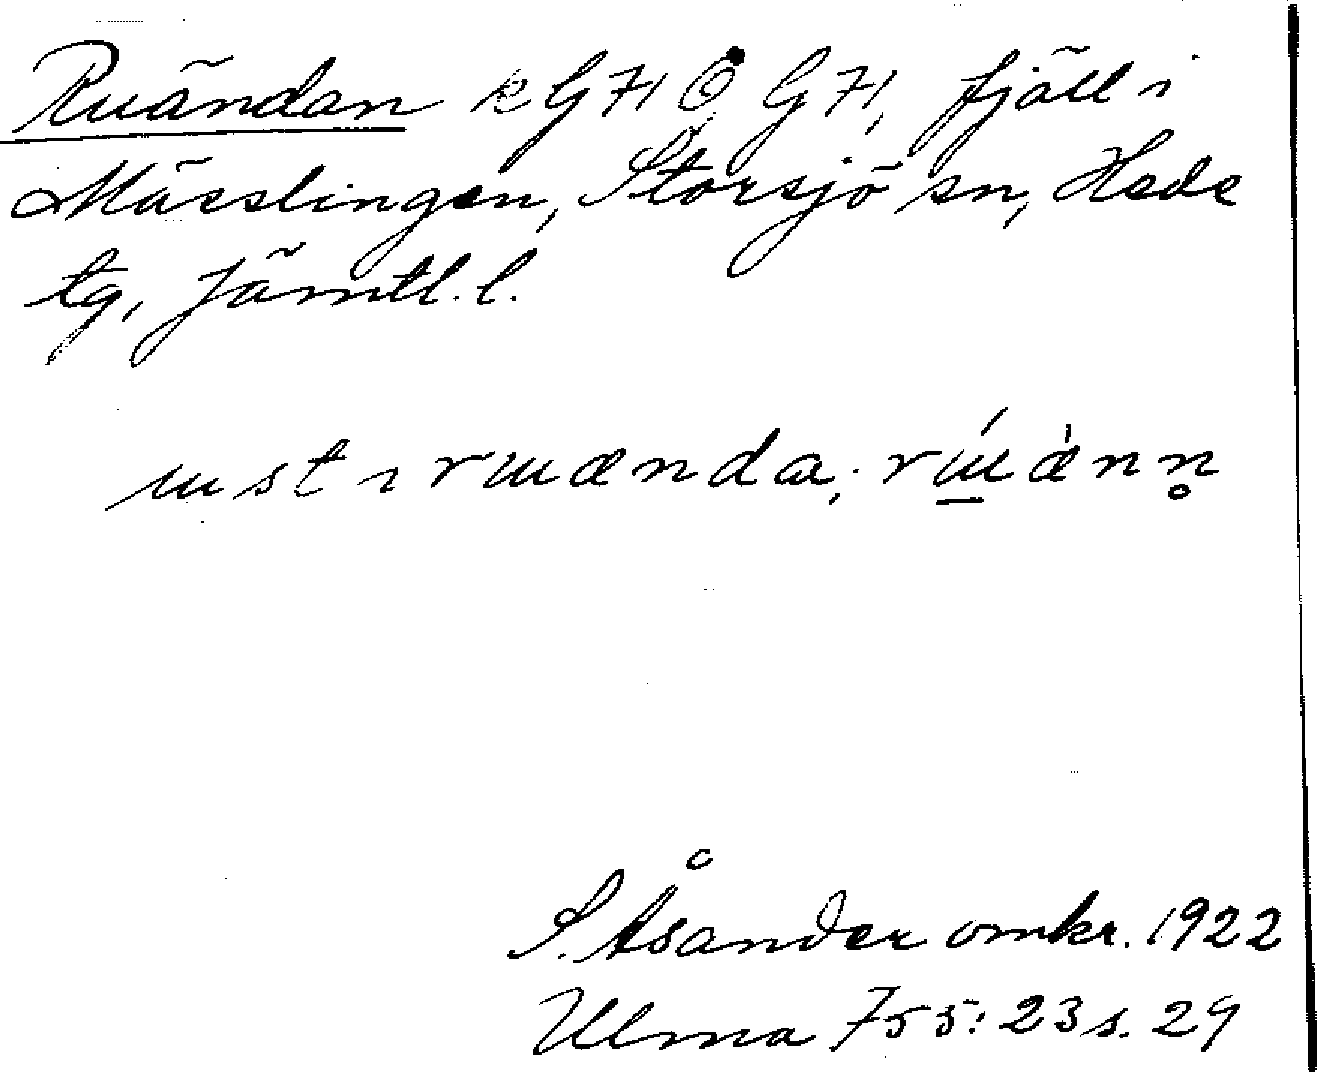 Ruändan k G 71 Ö G 71, fjäll i
Mässlingen, Storsjö sn, Hede
tg, Jämtl. l.
ust i rɯænda; rɯ́æ̀nn̥
S. Åsander omkr. 1922
Ulma 755:23 s. 29